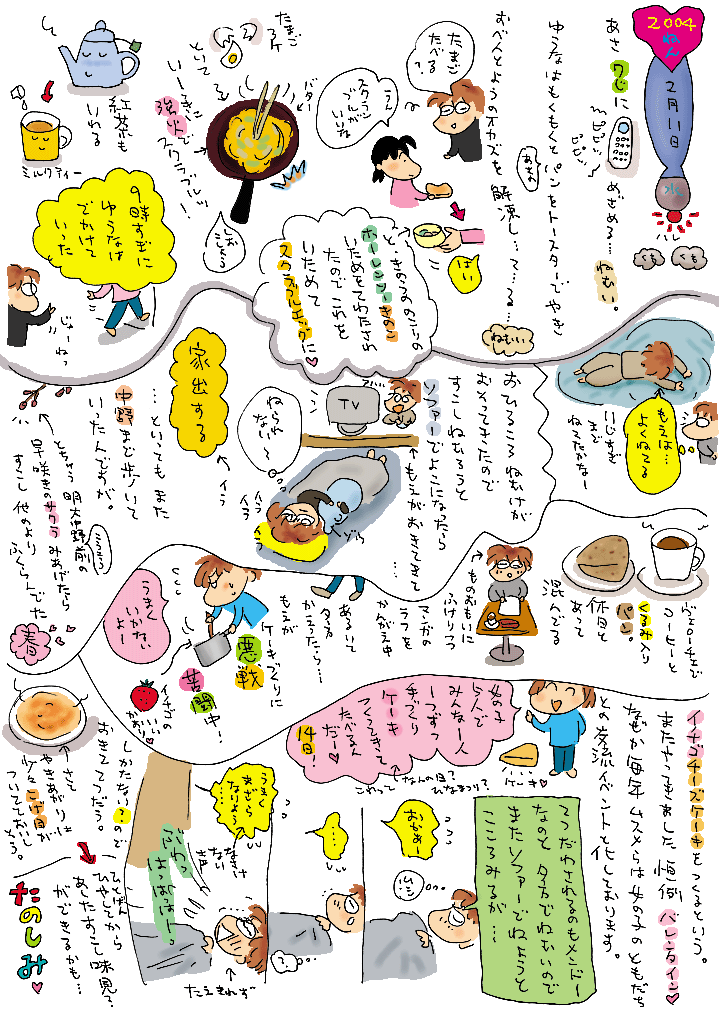 2004
ねん
2月11日
水
ハレ
くも
くも
あさ 7じに
ピピッ
ピピッ
めざめる… ねむい。
ゆうなはもくもくと パンをトースターで やき
おべんとようのオカズを 解凍し…て…る…
あさの
ねむい
たまご
たべる?
うん
スクラン
ブルが
いいな
はい
と、きのうの のこりの
ホーレンソーきのこ
いためをてわたされ
たので これを
いためて
スクランブルエッグに♥
たまご
2ケ
といて
バター
いーきに
強火で
スクラブルッ!
しお
こしょう
紅茶も
いれる
ミルクティー
9時すぎに
ゆうなは
でかけて
いった
じょーねっ
もえは…
よくねてる
11じすぎ
まで
ねてたかなー
おひるころ ねむけが
おそってきたので
すこしねむろうと
ソファーでよこになったら
←もえがおきてきて
TV
ねられ
ない〜
イライラ
イラ
←イラ
家出する
…といってもまた
中野まで歩いて
いったんですが。
とちゅう 明大中野前の
早咲きのサクラみあげたら
すこし 他のより
ふくらんでた
春
ヴェローチェで
コーヒーと
くるみ入り
パン。
休日と
あって
混んでる
←ものおもいに
ふけりつつ
マンガの
ラフを
かんがえ中
あるいて
夕方
かえったら…
もえが
ケーキづくりに
悪戦
苦闘中!
うまく
いかない
よー
イチゴの
いい
かおり♥
イチゴチーズケーキをつくるという。
またやってきました 恒例 バレンタイン♥
なぜか毎年 ムスメらは女の子のともだち
との交流イベントと化しております。
女の子
5人で
みんな一人
一つずつ
手づくり
ケーキ
つくってきて
たべるん
だー♥
14日!
←なんの日?
これって ひなまつり?
ケーキ♥
てつだわされるのもメンドー
なのと 夕方でねむいので
またソファーでねようと
こころみるが…
おかあー
ムシ
…
うまく
まざら
なりよう
……
なさけ
ない
声
←たえきれず
しかたない?ので
おきててつだう。
←さて
やきあがりは
少々こげ目が
ついてておいし
そう。
ひとばん
ひやしてから
あしたすこし味見?
ができるかも…
たのしみ♥